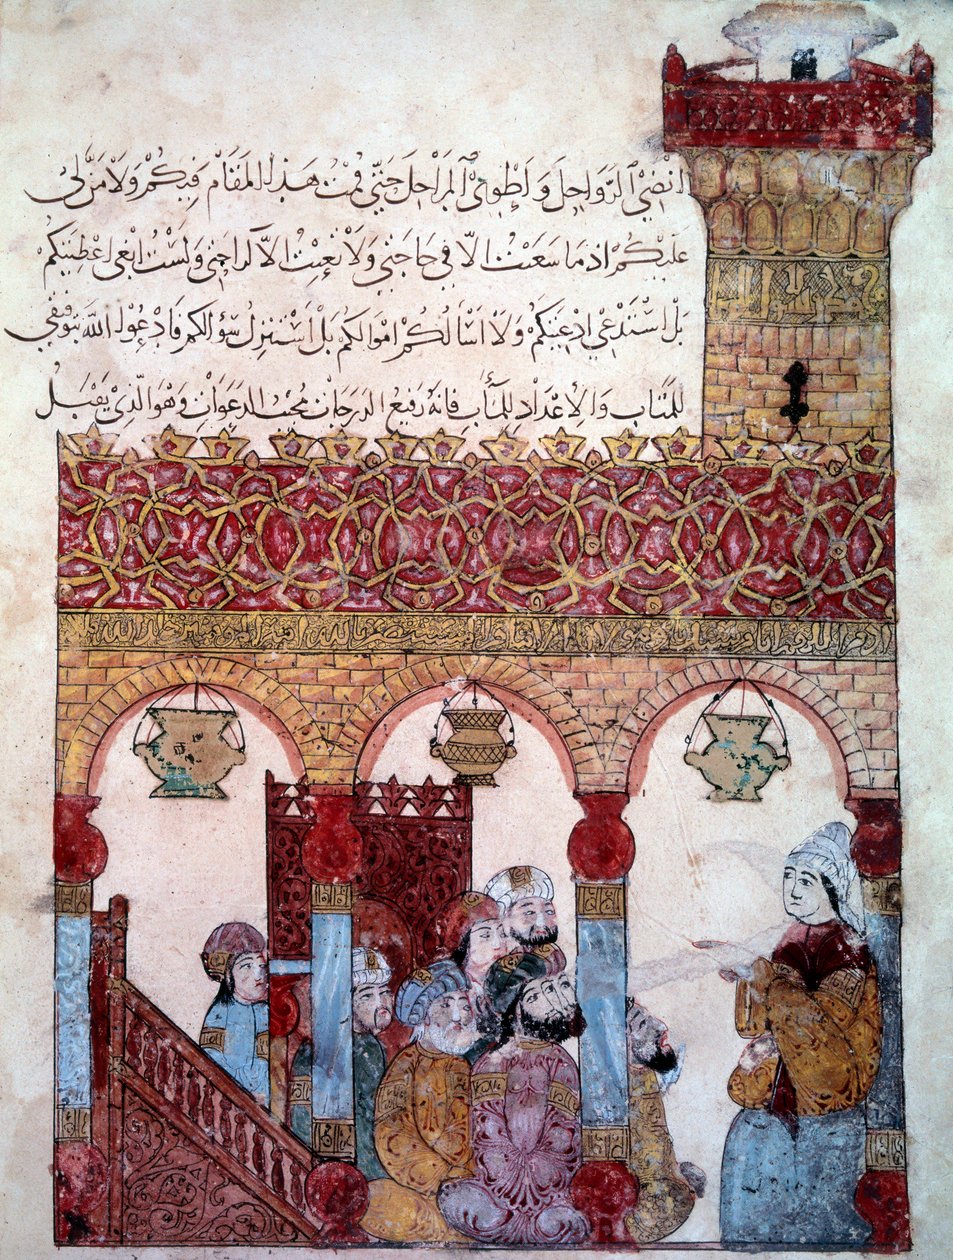 انضي الرواحل واطوي المراحل حتى قمت هذا المقام فيكم ولا من لي
عليكم اذ ما سعيت الا في حاجتي ولا تعبت الا لراحتي ولست ابغي اعطيتكم
بل استدعي ادعيتكم ولا اسالكم اموالكم بل استنزل سؤالكم فادعوا الله بتوفيقي
للمتاب والاعداد للمآب فانه رفيع الدرجات مجيب الدعوات وهو الذي يقبل
الامام المستعصم بالله امير المؤمنين